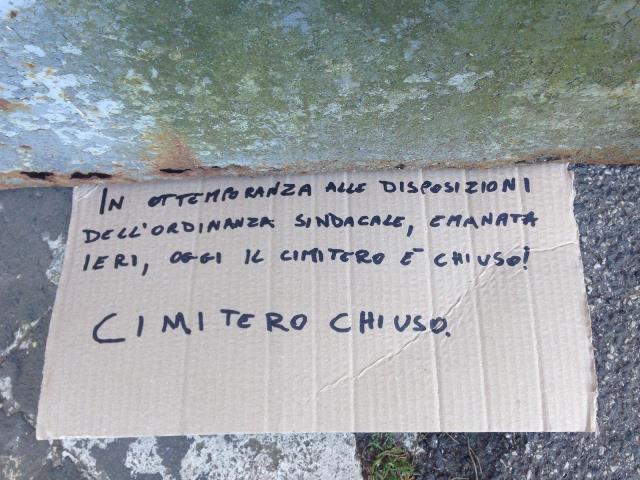 IN OTTEMPORANZA ALLE DISPOSIZIONI
DELL'ORDINANZA SINDACALE, EMANATA
IERI, OGGI IL CIMITERO È CHIUSO!
CIMITERO CHIUSO.